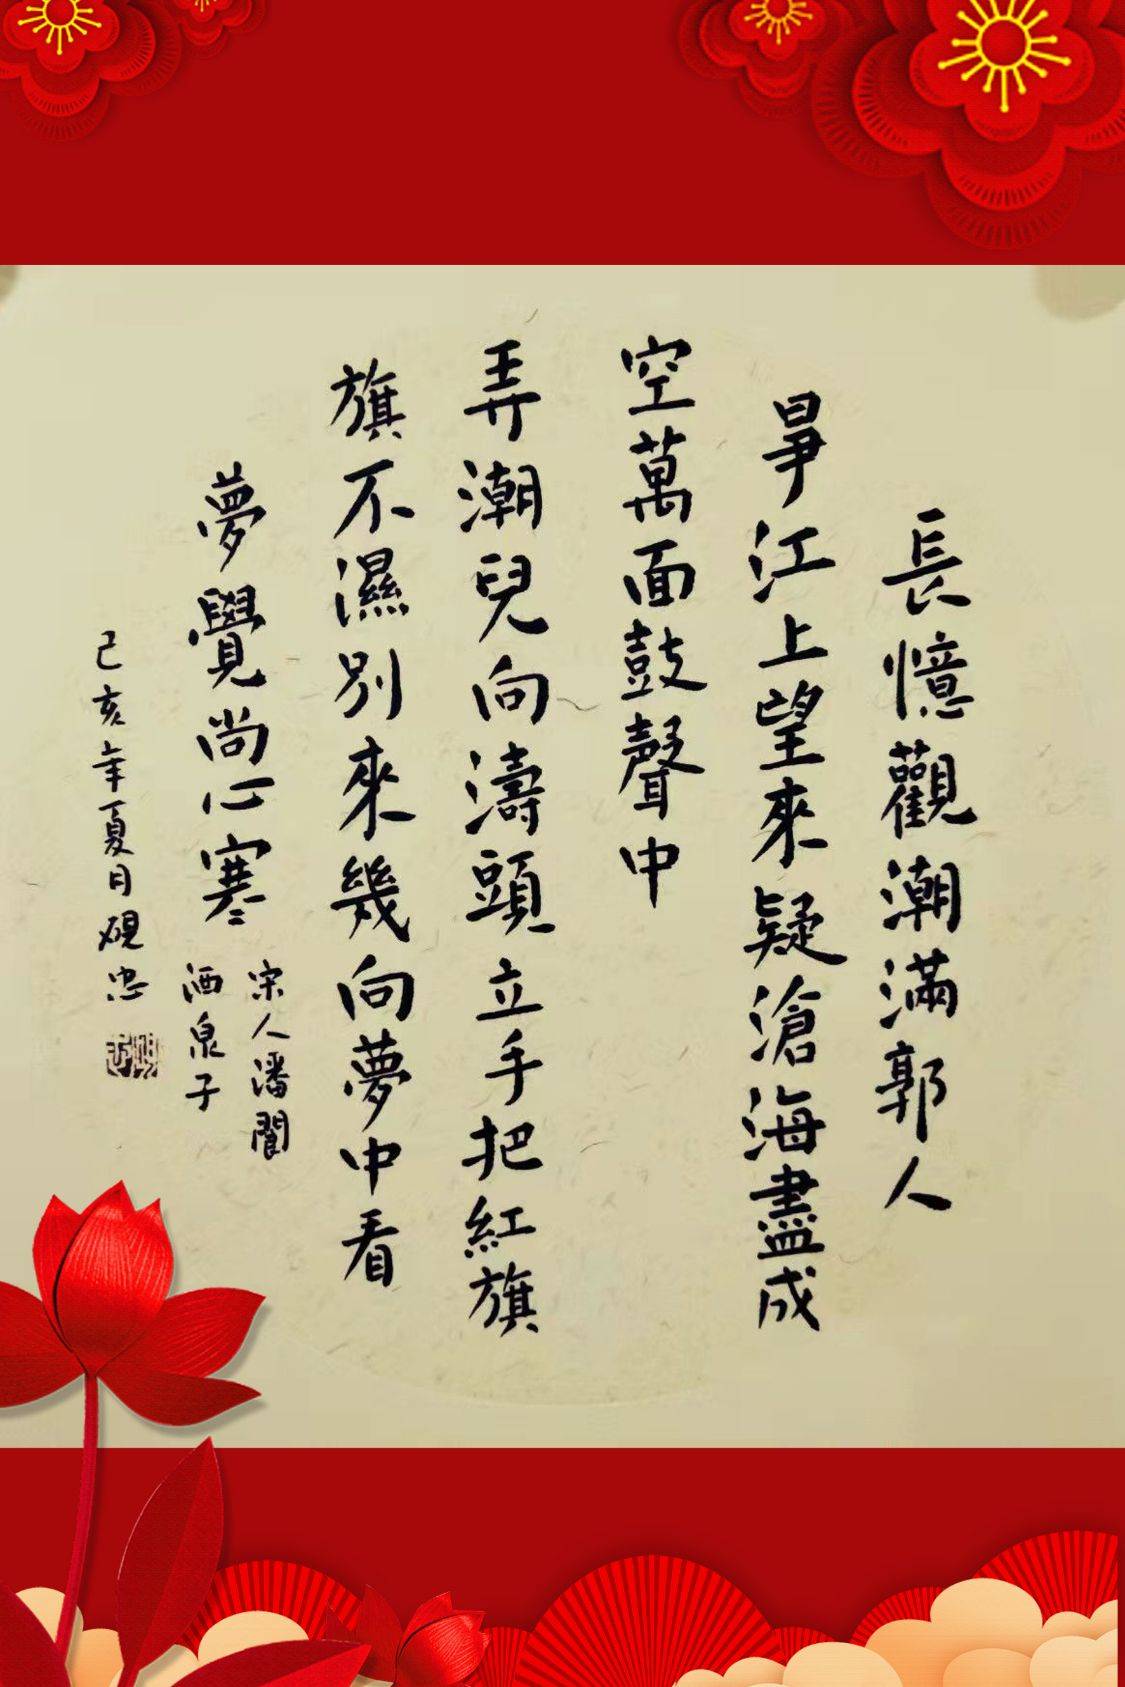 長憶觀潮滿郭人
爭江上望來疑滄海盡成
空萬面鼓聲中
弄潮兒向濤頭立手把紅旗
旗不濕別來幾向夢中看
夢覺尚心寒
宋人潘閬
酒泉子
己亥年夏月硯忠